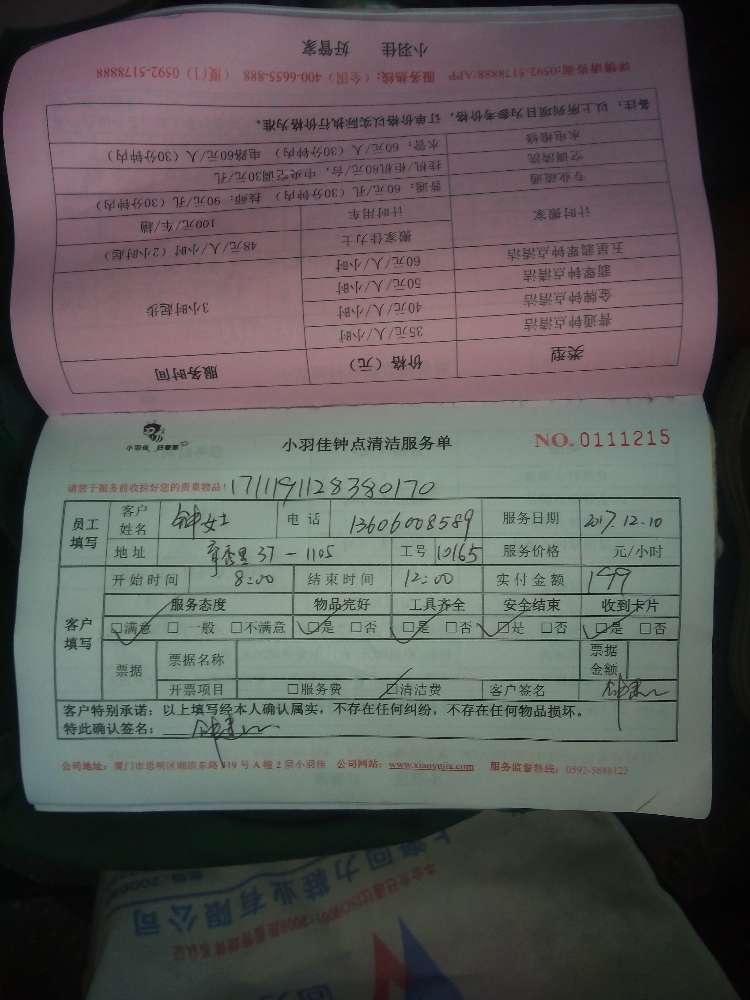 小羽佳 好管家
详情请咨询:0592-5178888/APP 服务热线:（全国）400-6655-888 （厦门）0592-5178888
备注：以上所列项目为参考价格，订单价格以实际执行价格为准。
水电维修 水管：60元/人（30分钟内） 电路60元/人（30分钟内）
空调清洗 挂机/柜机80元/台，中央空调30元/孔
专业疏通 普通：60元/孔（30分钟内） 技师：90元/孔（30分钟内）
计时搬家 计时用车 100元/车/趟
搬家佳力士 48元/人/小时（2小时起）
五星翡翠钟点清洁 60元/人/小时
翡翠钟点清洁 50元/人/小时 3小时起步
金牌钟点清洁 40元/人/小时
普通钟点清洁 35元/人/小时
类型 价格（元） 服务时间
小羽佳 好管家
小羽佳钟点清洁服务单
NO.0111215
请您于服务前收捡好您的贵重物品！
1711191128380170
员工填写 客户姓名 钟女士 电话 13606008589 服务日期 2017.12.10
地址 37-1105 工号 10165 服务价格 元/小时
客户填写 开始时间 8:00 结束时间 12:00 实付金额 199
服务态度 物品完好 工具齐全 安全结束 收到卡片
□满意 □一般 □不满意 □是 □否 □是 □否 □是 □否 □是 □否
票据 票据名称 票据金额
开票项目 □服务费 □清洁费 客户签名
客户特别承诺：以上填写经本人确认属实，不存在任何纠纷，不存在任何物品损坏。
特此确认签名：
公司地址：厦门市思明区湖滨东路319号A幢2层小羽佳 公司网站：www.xiaoyujia.com 服务监督热线：0592-5688123
上海回力鞋业有限公司